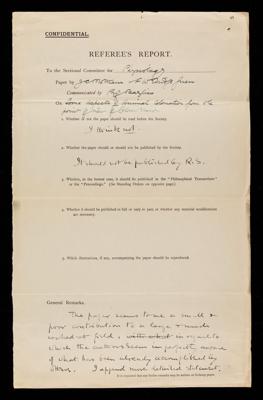 CONFIDENTIAL.
REFEREE'S REPORT.
To the Sectional Committee for Physiology
Paper by J. C. Mottram
Communicated by
On Some aspects of animal coloration from the
point of view of
1. Whether or not the paper should be read before the Society.
I think not.
2. Whether the paper should or should not be published by the Society.
It should not be published by R.S.
3. Whether, in the former case, it should be published in the "Philosophical Transactions"
or the "Proceedings." (See Standing Orders on opposite page.)
4. Whether it should be published in full or only in part, or whether any material modifications
are necessary.
5. Which illustrations, if any, accompanying the paper should be reproduced.
General Remarks.
The paper seems to me a small &
poor contribution to a large & much
worked at field, in regard to
which the authors seem imperfectly aware
of what has been already accomplished by
others. I append more detailed statement.
It is requested that any further remarks may be written on the following pages.